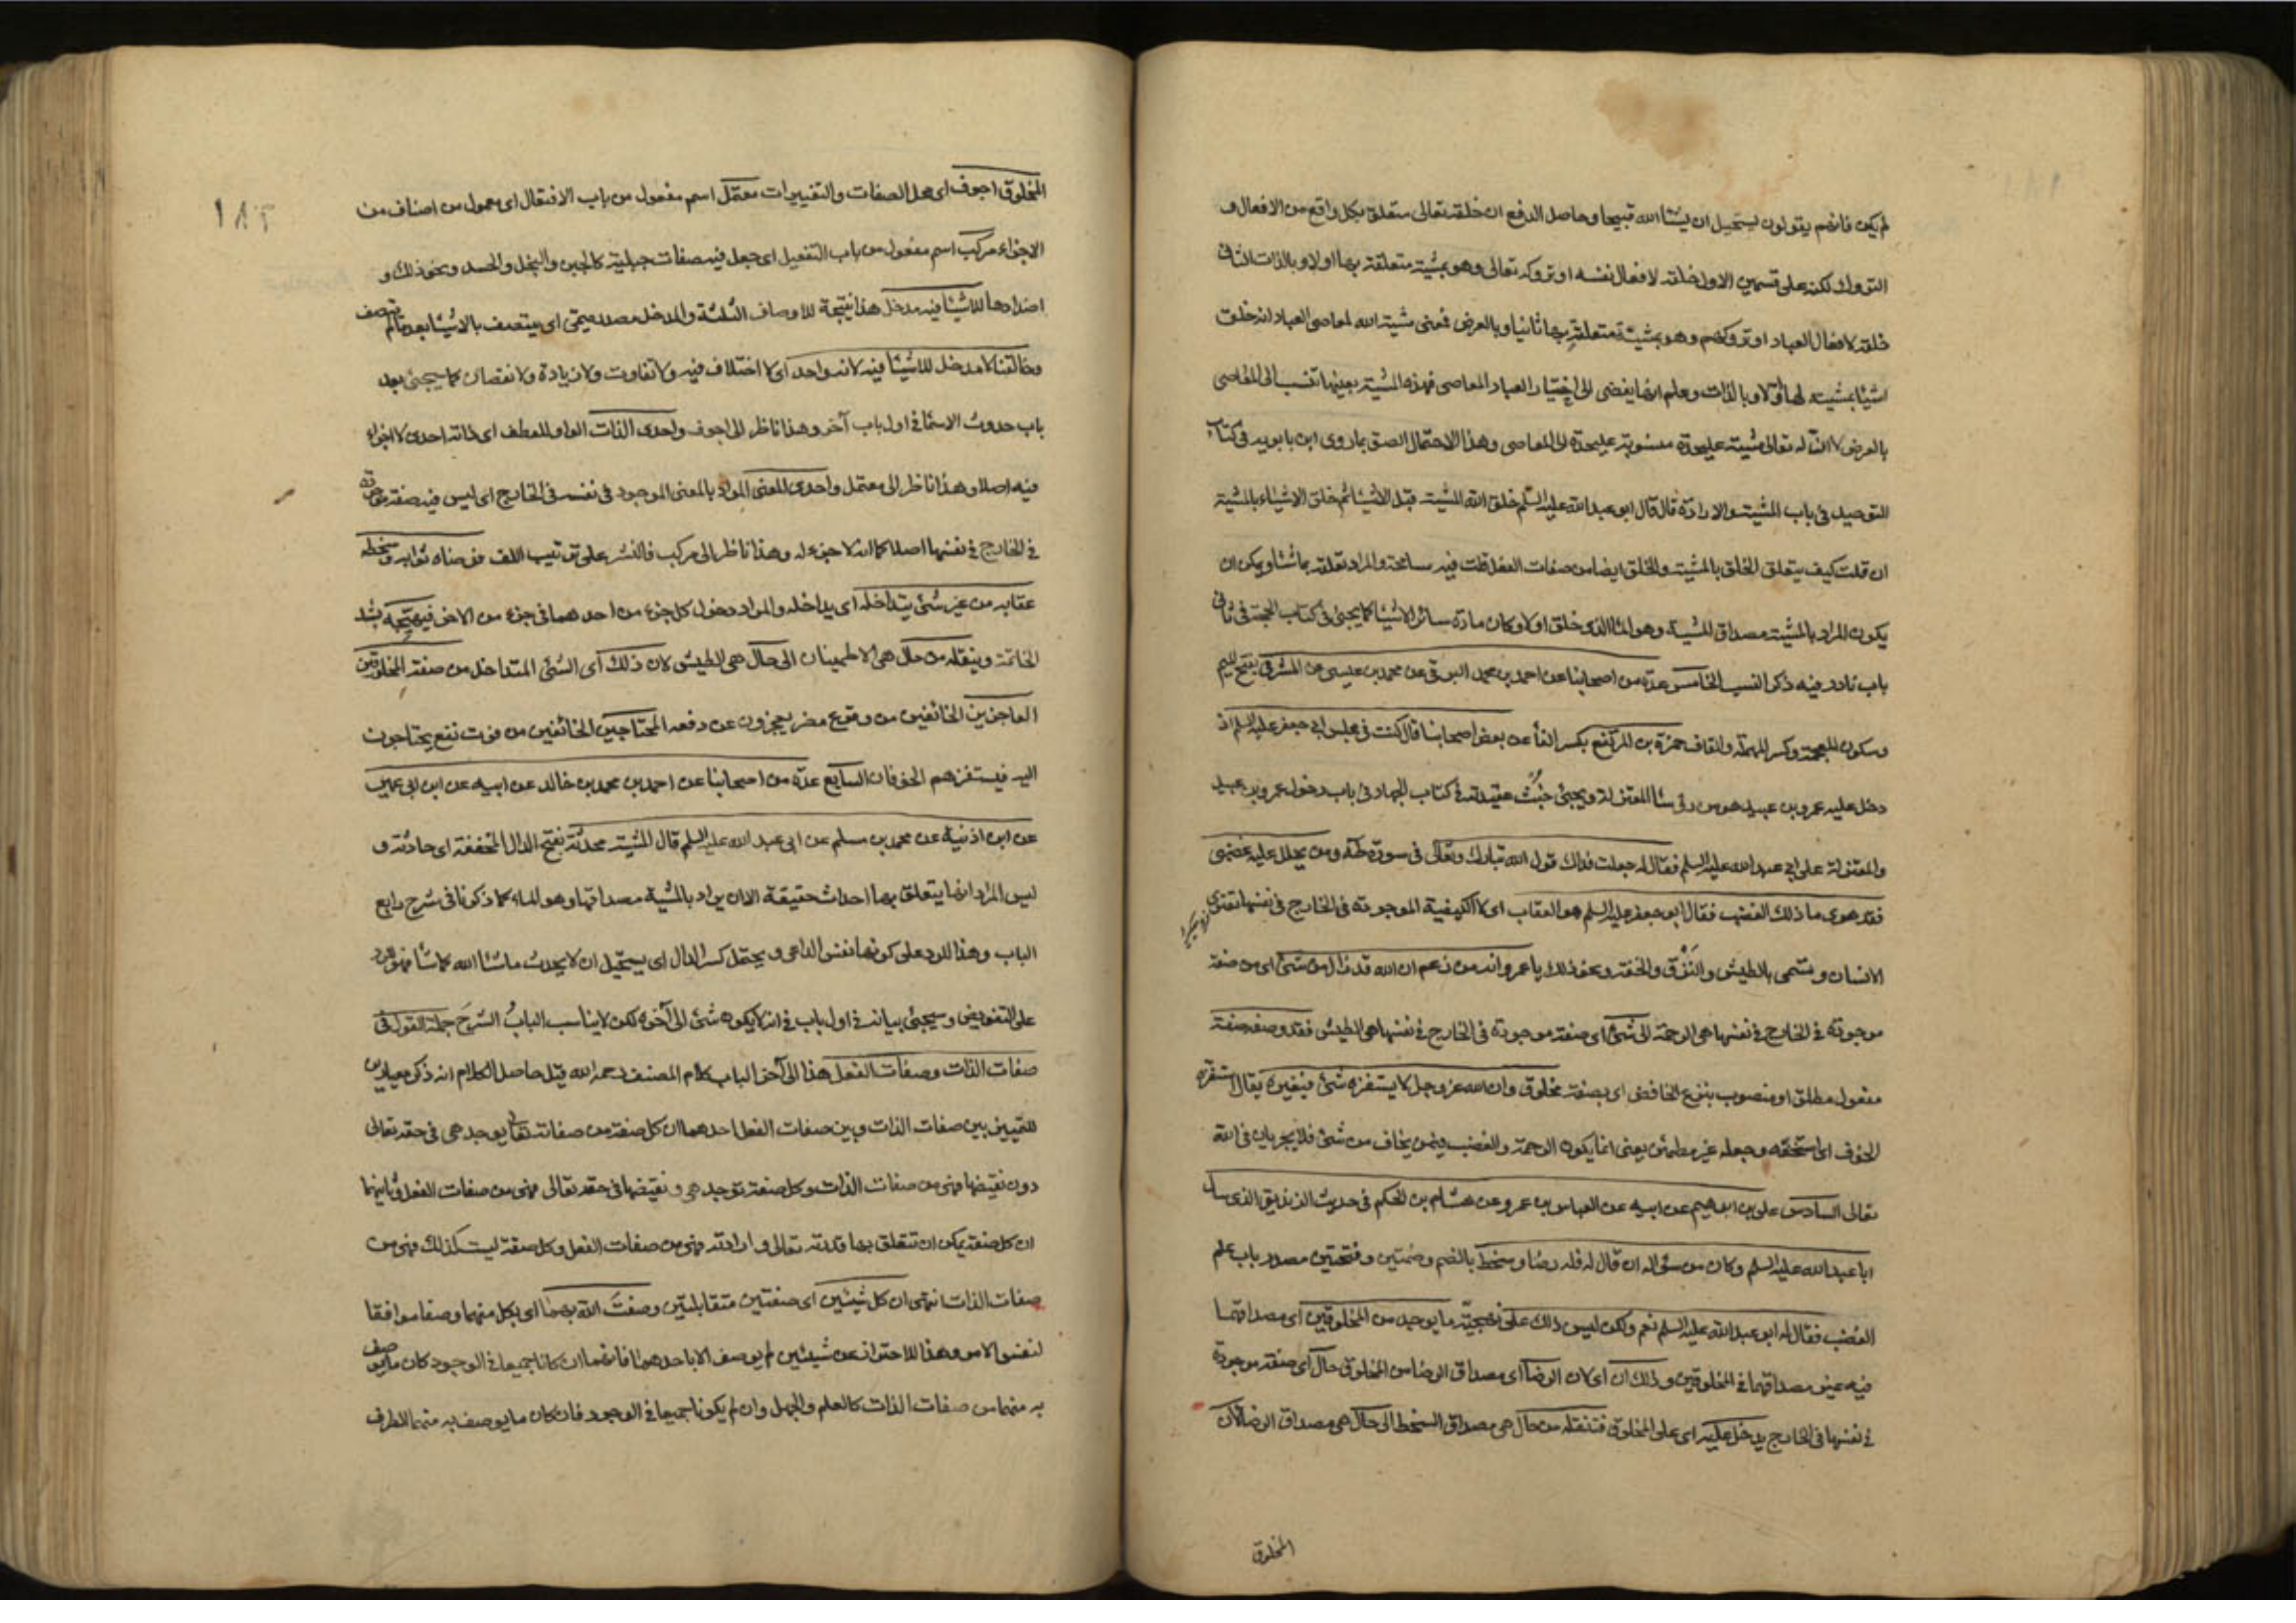 لم يكن فانهم يقولون يستحيل ان يشاالله قبيحا وحاصل الدفع ان خلقه تعالى متعلق بكل واقع من الافعال و
التروك لكنه على قسمين الاول خلقه لافعال نفسه او تروكه تعالى وهو بمشية متعلقة بها اولا وبالذات الثانى
خلقه لافعال العباد او تروكهم وهو بمشية متعلقة بها ثانيا وبالعرض فمعنى مشية الله لمعاصى العباد انه خلق
اشيا بمشيته لها اولا وبالذات وعلم انها يفضى الى اختيار العباد المعاصى فهذه المشية بعينها تنسب الى المعاصى
بالعرض لا ان له تعالى مشية عليحدة منسوبة عليحدة الى المعاصى وهذا الاحتمال الصق بما روى ابن بابويه فى كتاب
التوحيد فى باب المشية والارادة قال قال ابو عبدالله عليه السلم خلق الله المشية قبل الاشيا ثم خلق الاشياء بالمشية
ان قلت كيف يتعلق الخلق بالمشية والخلق ايضا من صفات الفعل قلت فيه مسامحة والمراد تعلقه بما شاو يمكن ان
يكون المراد بالمشية مصداق المشية وهو الماالذى خلق اولا وكان مادة سائر الاشيا كما يجئ فى كتاب الحجة فى ثانى
باب نادر فيه ذكر النسب الخامس عدة من اصحابنا عن احمد بن محمد البرقى عن محمد بن عيسى عن المشرقى بفتح الميم
وسكون المعجمة وكسر المهملة والقاف حمزة بن المرتفع بكسر الفأ عن بعض اصحابنا قال كنت فى مجلس ابى جعفر عليه السلم اذ
دخل عليه عمرو بن عبيد هو من رؤسا المعتزلة ويجئ خبث عقيدته فى كتاب الجهاد فى باب دخول عمرو بن عبيد
والمعتزلة على ابى عبدالله عليه السلم فقال له جعلت فداك قول الله تبارك وتعالى فى سورة طه ومن يحلل عليه غضبى
فقد هوى ما ذلك الغضب فقال ابو جعفر عليه السلم هو العقاب اى لا الكيفية الموجودة فى الخارج فى نفسها تعترى
الانسان و يسمى بالطيش والنزق والخفة ونحو ذلك يا عمرو انه من زعم ان الله قد زال من شئ اى من صفة
موجودة فى الخارج فى نفسها هى الرحمة الى شئ اى صفة موجودة فى الخارج فى نفسها هى الطيش فقد وصفه صفة
مفعول مطلق او منصوب بنزع الخافض اى بصفة مخلوق وان الله عز وجل لا يستفزه شئ فيغيره يقال استفزه
الخوف اى استخفه وجعله غير مطمئن يعنى انما يكون الرحمة والغضب فيمن يخاف من شئ فلا يجريان فى الله
تعالى السادس على بن ابراهيم عن ابيه عن العباس بن عمرو عن هشام بن الحكم فى حديث الزنديق الذى سال
ابا عبدالله عليه السلم وكان من سؤاله ان قال له فله رضا وسخط بالضم وضمتين وفتحتين مصدر باب علم
الغضب فقال له ابو عبدالله عليه السلم نعم ولكن ليس ذلك على ما يوجد من المخلوقين اى مصداقهما
فيه غير مصداقهما فى المخلوقين وذلك ان اى لان الرضا اى مصداق الرضا من المخلوق حال اى صفة موجودة
فى نفسها فى الخارج يدخل عليه اى على المخلوق فتنقله من حال هى مصداق السخط الى حال هى مصداق الرضا لان
المخلوق
١٨٢
المخلوق اجوف اى محل الصفات والتغييرات معتمل اسم مفعول من باب الافتعال اى معمول من اصناف من
الاجزاء مركب اسم مفعول من باب التفعيل اى جعل فيه صفات جبلية كالجبن والبخل والحسد ونحو ذلك و
اضدادها للاشيأ فيه مدخل هذا نتيجة للاوصاف الثلثة والمدخل مصدر ميمى اى يتصف بالاشيأ بعد مالم يتصف
وخالقنا لا مدخل للاشيأ فيه لانه واحد اى لا اختلاف فيه ولا تفاوت ولا زيادة ولا نقصان كما سيجئ بعد
باب حدوث الاسما فى اول باب آخر وهذا ناظر الى اجوف واحدى الذات الواو للعطف اى ذاته احدى لا اجزاء
فيه اصلا وهذا ناظر الى معتمل واحدى المعنى المراد بالمعنى الموجود فى نفسه فى الخارج اى ليس فيه صفة موجودة
فى الخارج فى نفسها اصلا كما انه لا جزء له وهذا ناظر الى مركب فالنشر على ترتيب اللف فرضاه ثوابه وسخطه
عقابه من غير شئ يتداخله اى يداخله والمراد دخول كل جزء من احدهما فى جزء من الاخر فيهيجه
وينقله من حال هى الاطمينان الى حال هى الطيش لان ذلك اى الشئ المتداخل من صفة المخلوقين
العاجزين الخائفين من وقوع مضر يعجزون عن دفعه المحتاجين الخائفين من فوت نفع يحتاجون
اليه فيستفزهم الخوفان السابع عدة من اصحابنا عن احمد بن محمد بن خالد عن ابيه عن ابن ابى عمير
عن ابن اذنية عن محمد بن مسلم عن ابى عبد الله عليه السلم قال المشية محدثة بفتح الدال المخففة اى حادثة و
ليس المراد انها يتعلق بها احداث حقيقة الا ان يراد بالمشية مصداقها وهو الماء كما ذكرنا فى شرح رابع
الباب وهذا للرد على كونها نفس الداعى و يحتمل كسر الدال اى يستحيل ان لا يحدث ماشاالله كما شا فهو رد
على التفويض وسيجئ بيانه فى اول باب فى انه لا يكون شئ الى آخره لكن لا يناسب الباب الشرح جملة القول فى
صفات الذات وصفات الفعل هذا الى آخر الباب كلام المصنف رحمه الله قيل حاصل الكلام انه ذكر معيارين
للتمييز بين صفات الذات وبين صفات الفعل احدهما ان كل صفة من صفاته تعالى يوجد هى فى حقه تعالى
دون نقيضها فهى من صفات الذات وكل صفة توجد هى و نقيضها فى حقه تعالى فهى من صفات الفعل وثانيهما
ان كل صفة يمكن ان تتعلق بها قدرته تعالى وارادته فهى من صفات الفعل وكل صفة ليست كذلك فهى من
صفات الذات انتهى ان كل شيئين اى صفتين متقابلتين وصفت الله بهما اى بكل منهما وصفا موافقا
لنفس الامر وهذا للاحتراز عن شيئين لم يوصف الا باحدهما فانهما ان كانا جميعا فى الوجود كان ما يوصف
به منهما من صفات الذات كالعلم والجهل وان لم يكونا جميعا فى الوجود فان كان ما يوصف به منهما الطرف